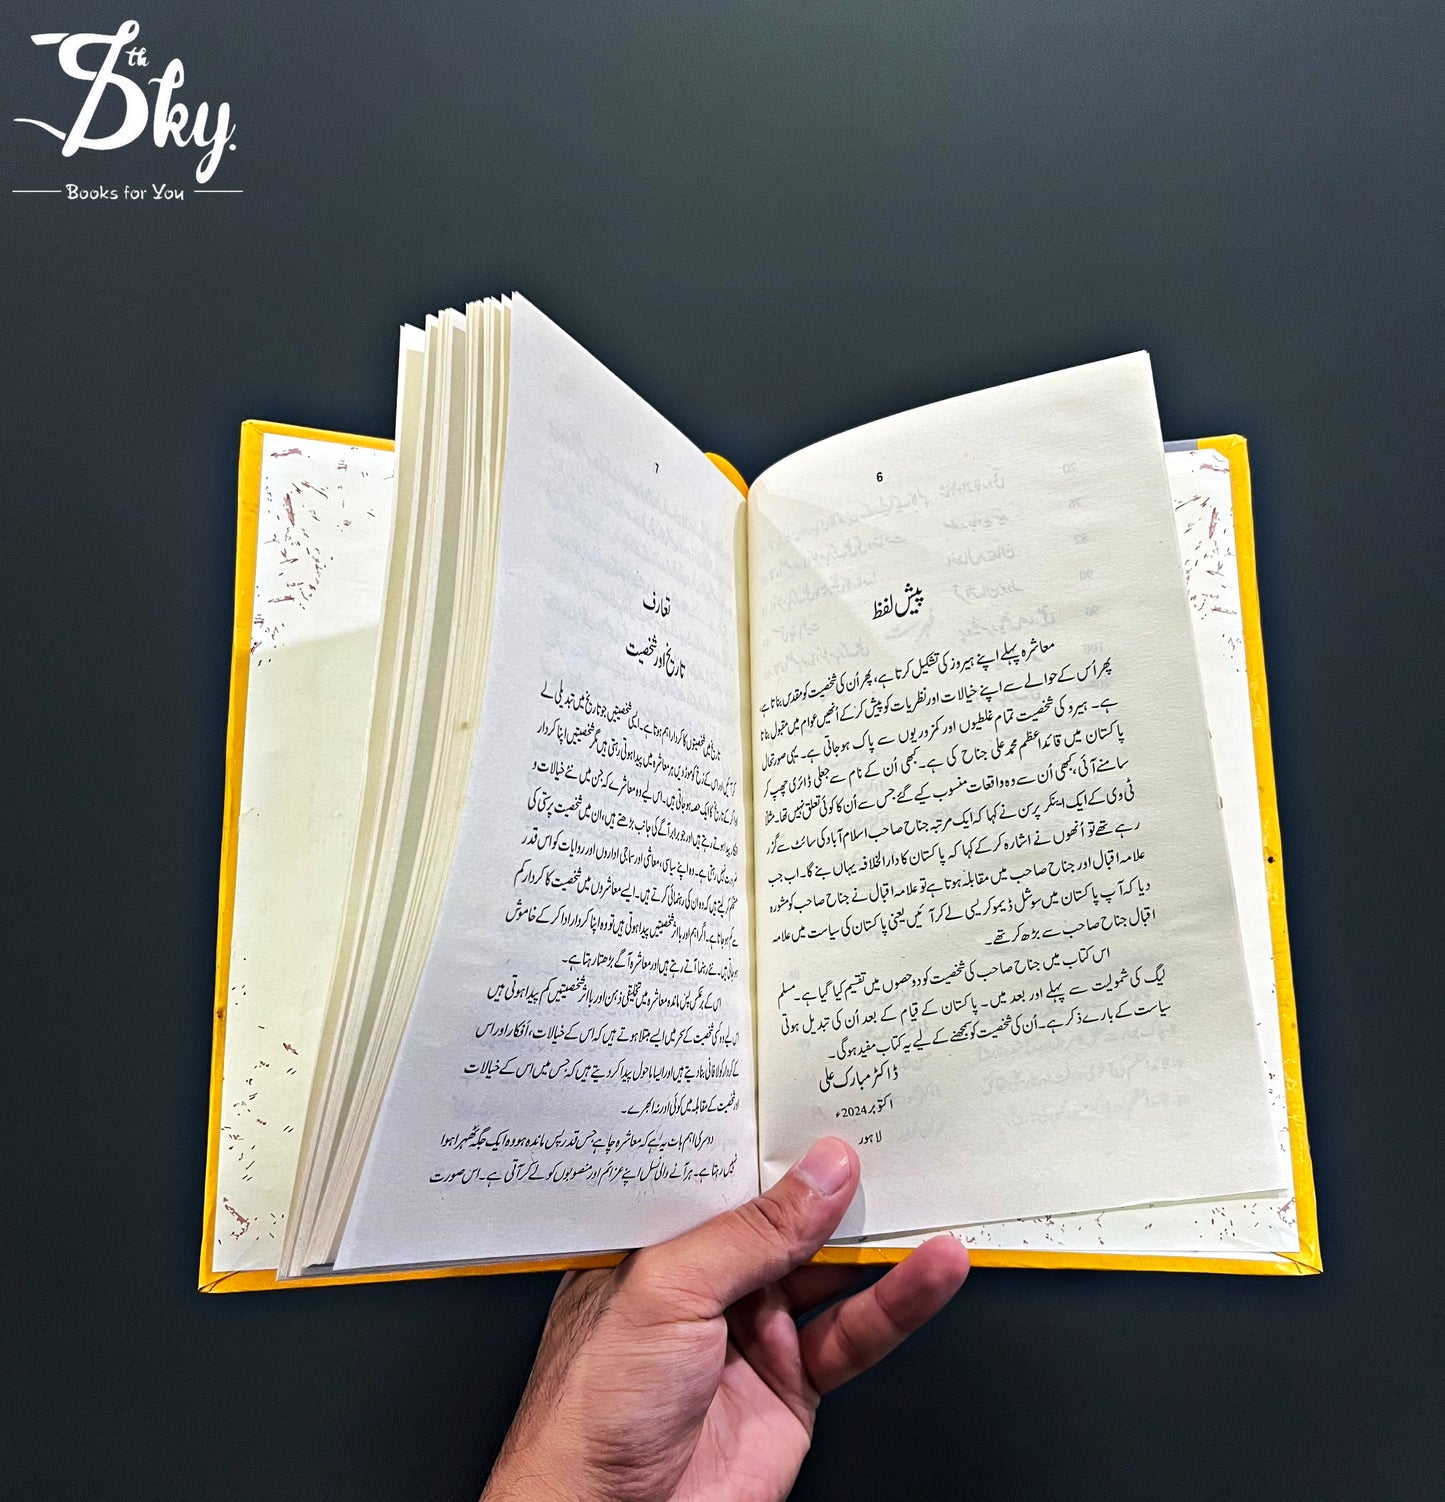 8th Sky.
Books for You
6
پیش لفظ
معاشرہ پہلے اپنے ہیروز کی تشکیل کرتا ہے، پھر اُن کی شخصیت کو مقدس بناتا ہے،
پھر اُس کے حوالے سے اپنے خیالات اور نظریات کو پیش کر کے اُنھیں عوام میں مقبول بناتا
ہے۔ ہیرو کی شخصیت تمام غلطیوں اور کمزوریوں سے پاک ہو جاتی ہے۔ یہی صورتحال
پاکستان میں قائداعظم محمد علی جناح کی ہے۔ کبھی اُن کے نام سے جعلی ڈائری چھپ کر
سامنے آئی، کبھی اُن سے وہ واقعات منسوب کیے گئے جس سے اُن کا کوئی تعلق نہیں تھا۔ مثلاً
ٹی وی کے ایک اینکر پرسن نے کہا کہ ایک مرتبہ جناح صاحب اسلام آباد کی سائٹ سے گزر
رہے تھے تو اُنھوں نے اشارہ کر کے کہا کہ پاکستان کا دارالخلافہ یہاں بنے گا۔ اب جب
علامہ اقبال اور جناح صاحب میں مقابلہ ہوتا ہے تو علامہ اقبال نے جناح صاحب کو مشورہ
دیا کہ آپ پاکستان میں سوشل ڈیموکریسی لے کر آئیں یعنی پاکستان کی سیاست میں علامہ
اقبال جناح صاحب سے بڑھ کر تھے۔
اس کتاب میں جناح صاحب کی شخصیت کو دو حصوں میں تقسیم کیا گیا ہے۔ مسلم
لیگ کی شمولیت سے پہلے اور بعد میں۔ پاکستان کے قیام کے بعد اُن کی تبدیل ہوتی
سیاست کے بارے ذکر ہے۔ اُن کی شخصیت کو سمجھنے کے لیے یہ کتاب مفید ہوگی۔
ڈاکٹر مبارک علی
اکتوبر 2024ء
لاہور
7
تعارف
تاریخ اور شخصیت
تاریخ میں شخصیتوں کا کردار اہم ہوتا ہے۔ ایسی شخصیتیں جو تاریخ میں تبدیلی لے
کر آئیں اور اس کے رُخ کو موڑ دیں ہر معاشرہ میں پیدا ہوتی رہتی ہیں مگر شخصیتیں اپنا کردار
ادا کر کے تاریخ کا ایک حصہ ہو جاتی ہیں۔ اس لیے وہ معاشرے کہ جن میں نئے خیالات و
افکار پیدا ہوتے رہتے ہیں اور جو برابر آگے کی جانب بڑھتے ہیں، ان میں شخصیت پرستی کی
ضرورت نہیں رہتی ہے۔ وہ اپنے سیاسی، معاشی اور سماجی اداروں اور روایات کو اس قدر
مستحکم کر لیتے ہیں کہ وہ ان کی رہنمائی کرتے ہیں۔ ایسے معاشروں میں شخصیت کا کردار کم
سے کم ہو جاتا ہے۔ اگر اہم اور بااثر شخصیتیں پیدا ہوتی ہیں تو وہ اپنا کردار ادا کر کے خاموش
ہو جاتی ہیں۔ نئے رہنما آتے رہتے ہیں اور معاشرہ آگے بڑھتا رہتا ہے۔
اس کے برعکس پس ماندہ معاشرہ میں تخلیقی ذہن اور بااثر شخصیتیں کم پیدا ہوتی ہیں
اس لیے وہ کسی شخصیت کے سحر میں ایسے مبتلا ہوتے ہیں کہ اس کے خیالات، اَفکار اور اس
کے کردار کو لافانی بنا دیتے ہیں اور ایسا ماحول پیدا کر دیتے ہیں کہ جس میں اس کے خیالات
اور شخصیت کے مقابلہ میں کوئی اور نہ اُبھرے۔
دوسری اہم بات یہ ہے کہ معاشرہ چاہے جس قدر پس ماندہ ہو وہ ایک جگہ ٹھہرا ہوا
نہیں رہتا ہے۔ ہر آنے والی نسل اپنے عزائم اور منصوبوں کو لے کر آتی ہے۔ اس صورت